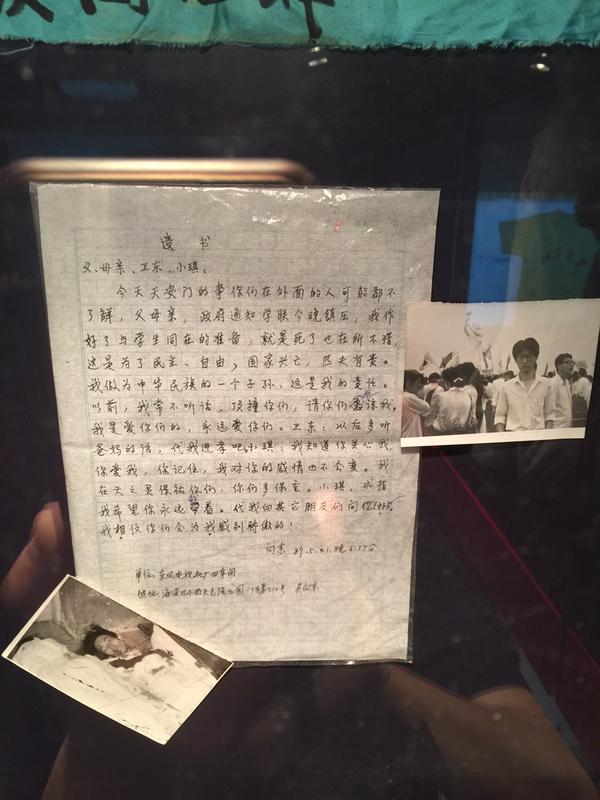 遗书
父、母亲、卫东、小琪：
今天天安门的事你们在外面的人可能都不
了解，父母亲，政府通知学联今晚镇压，我作
好了与学生同在的准备，就是死了也在所不惜，
这是为了民主、自由，国家兴亡，匹夫有责。
我做为中华民族的一个子孙，这是我的责任。
以前，我常不听话，顶撞你们，请你们原谅我，
我是爱你们的，永远爱你们。卫东：以后多听
爸妈的话，代我进孝吧，小琪：我知道你关心我，
你爱我，你记住，我对你的感情也不会变。我
在天之灵保祐你们，你们多保重。小琪，戒指
我希望你永远带着。代我向其它朋友们问你们好
我相信你们会为我感到骄傲的！
向东 89.5.21.晚6:55分
单位：东风电视机厂四车间
地址：海淀区
吴向东